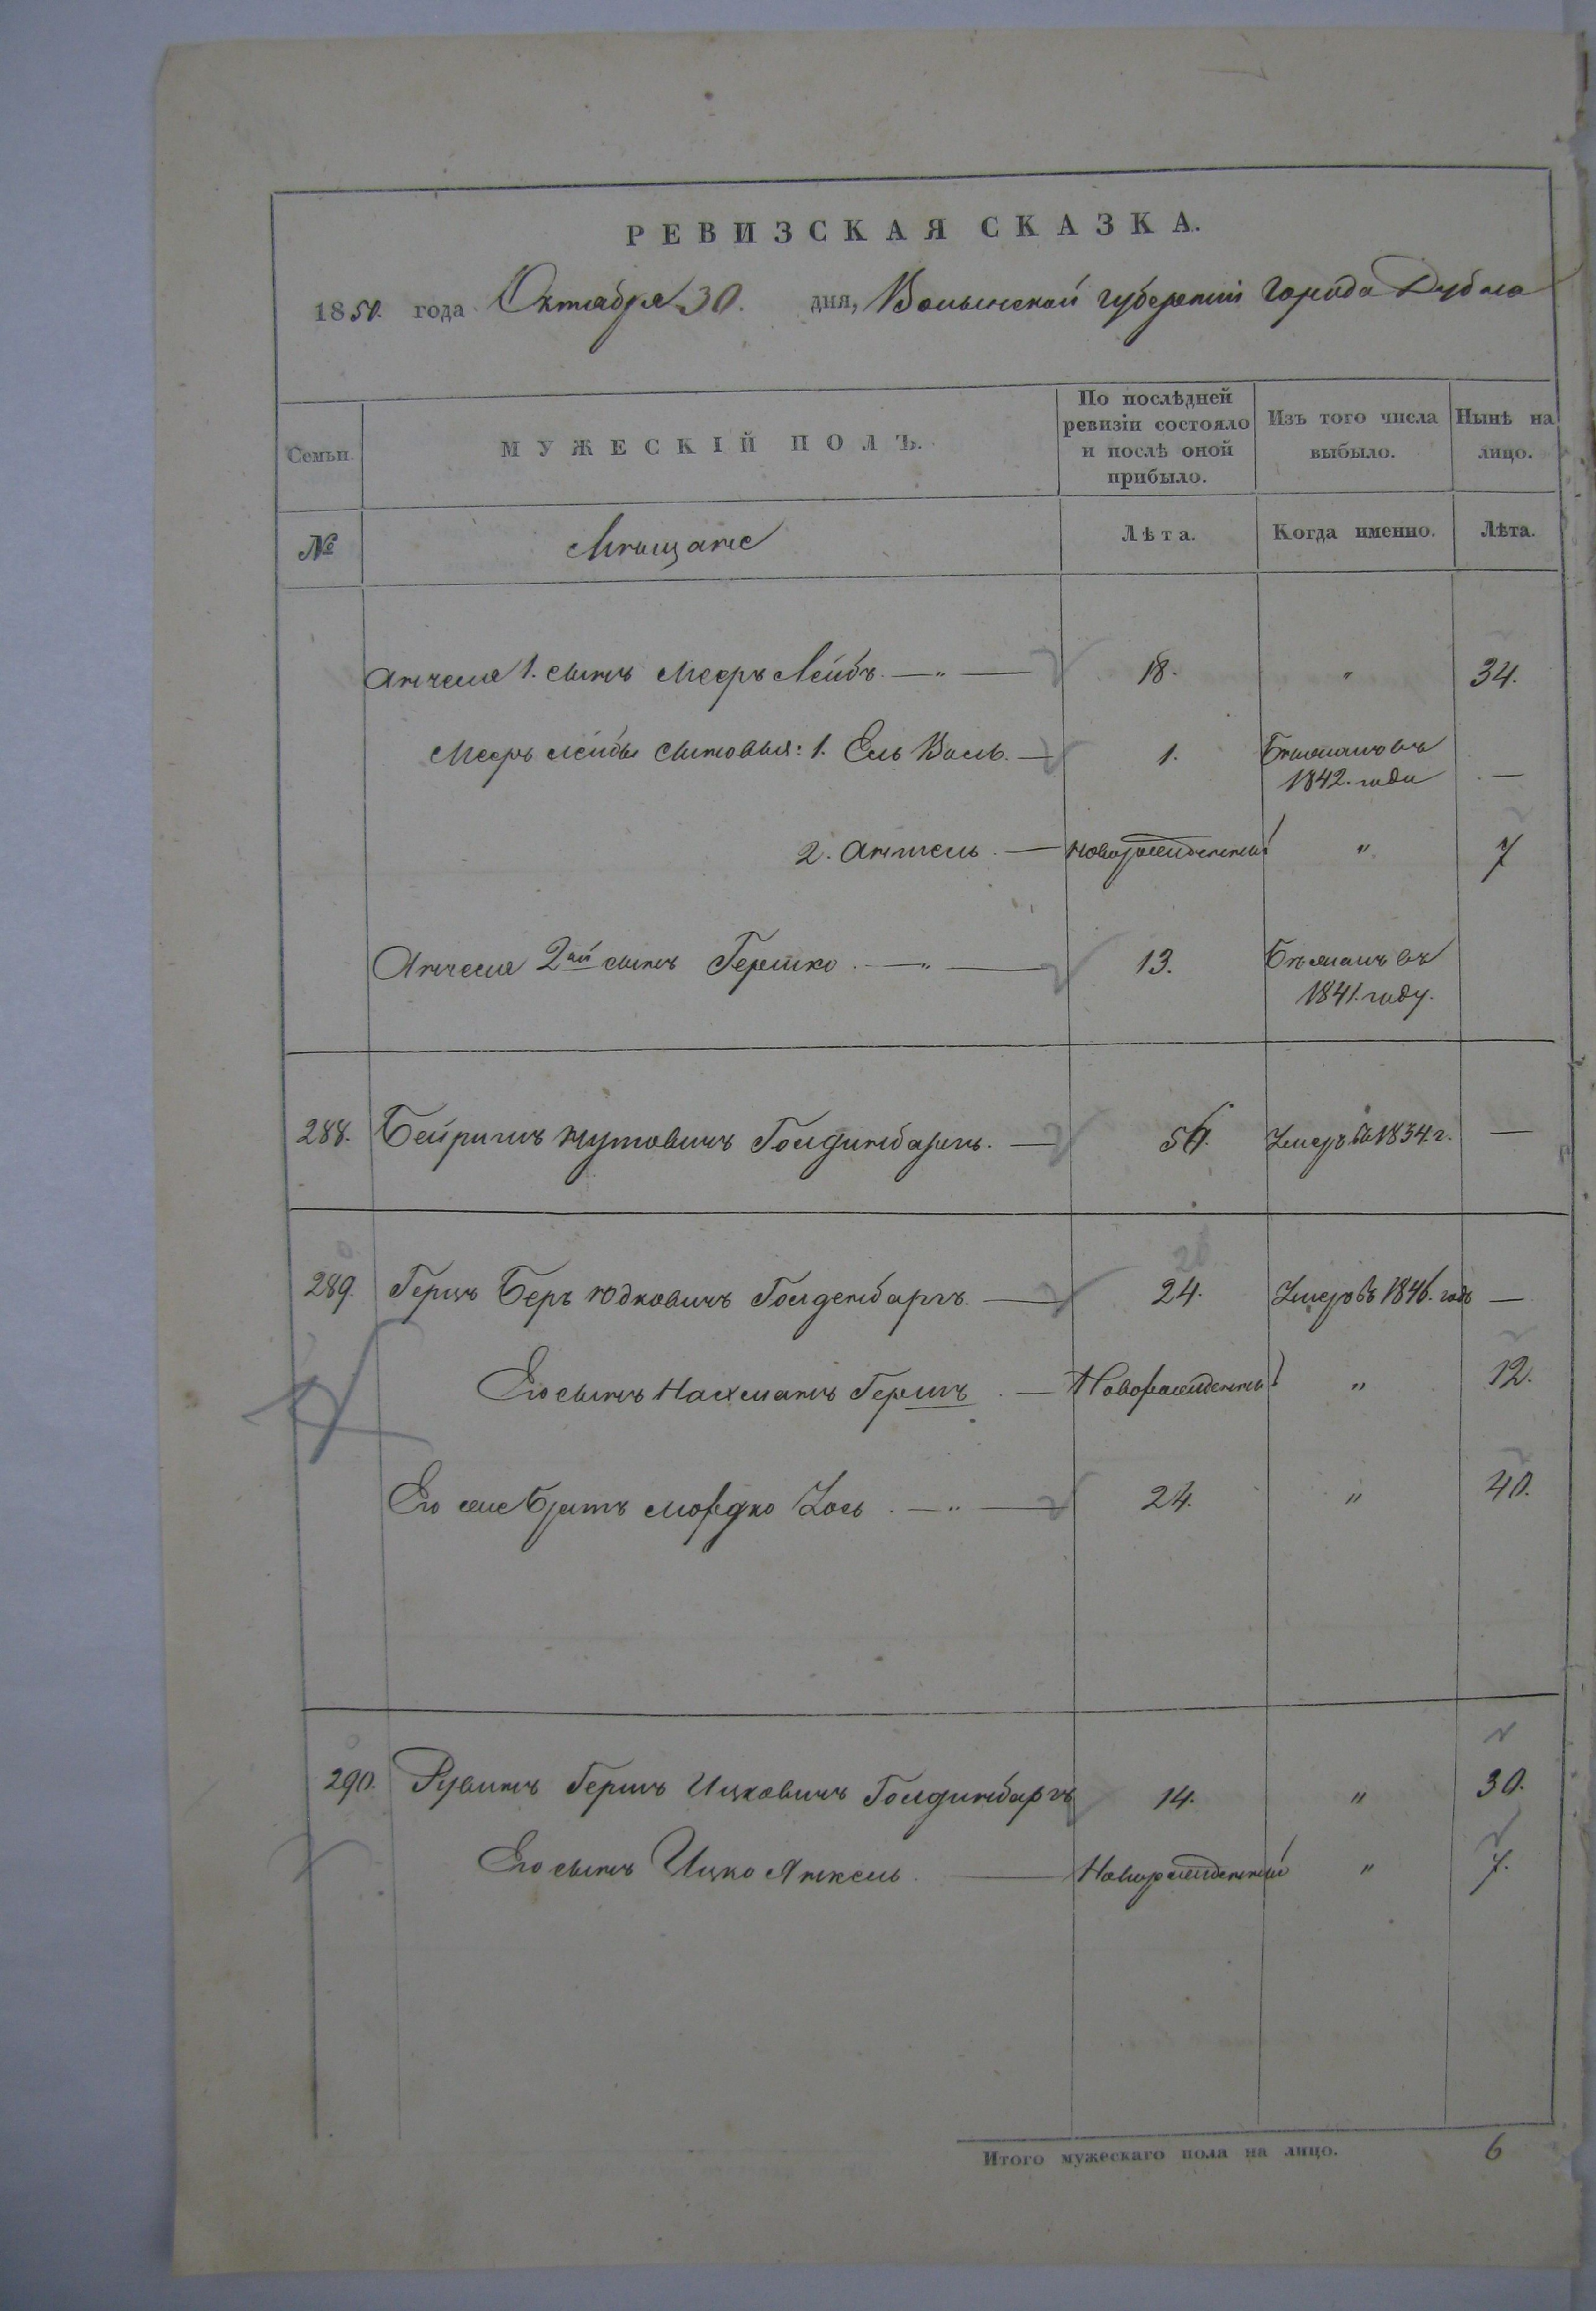 РЕВИЗСКАЯ СКАЗКА.
1850. года Октября 30. дня, Волынской губерніи Города Дубно
Семьи. МУЖЕСКІЙ ПОЛЪ. По послѣдней ревизіи состояло и послѣ оной прибыло. Изъ того числа выбыло. Нынѣ на лицо.
№ Мѣщане Лѣта. Когда именно. Лѣта.
Анчеля 1. сынъ Мееръ Лейбъ. — „ — 18. „ 34.
Мееръ Лейбы сыновья: 1. Ель Вольѣ. — 1. Бѣжалъ въ 1842. году —
2. Анчель. — новорожденный „ 7
Анчеля 2ой сынъ Гершко. — „ — 13. Бѣжалъ въ 1841. году.
288. Бейришъ Нутовичъ Голдинбаргъ. — 54. Умеръ въ 1834. г. —
289. Гершъ Беръ Юдковичъ Голденбаргъ. — 24. Умеръ въ 1846. годъ —
Его сынъ Нахманъ Гершъ. — Новорожденный „ 12.
Его же братъ Мордко Зось. — „ — 24. „ 40.
290. Рувинъ Гершъ Ицковичъ Голдинбаргъ 14. „ 30.
Его сынъ Ицко Янкель. — Новорожденный „ 7.
Итого мужескаго пола на лицо. 6